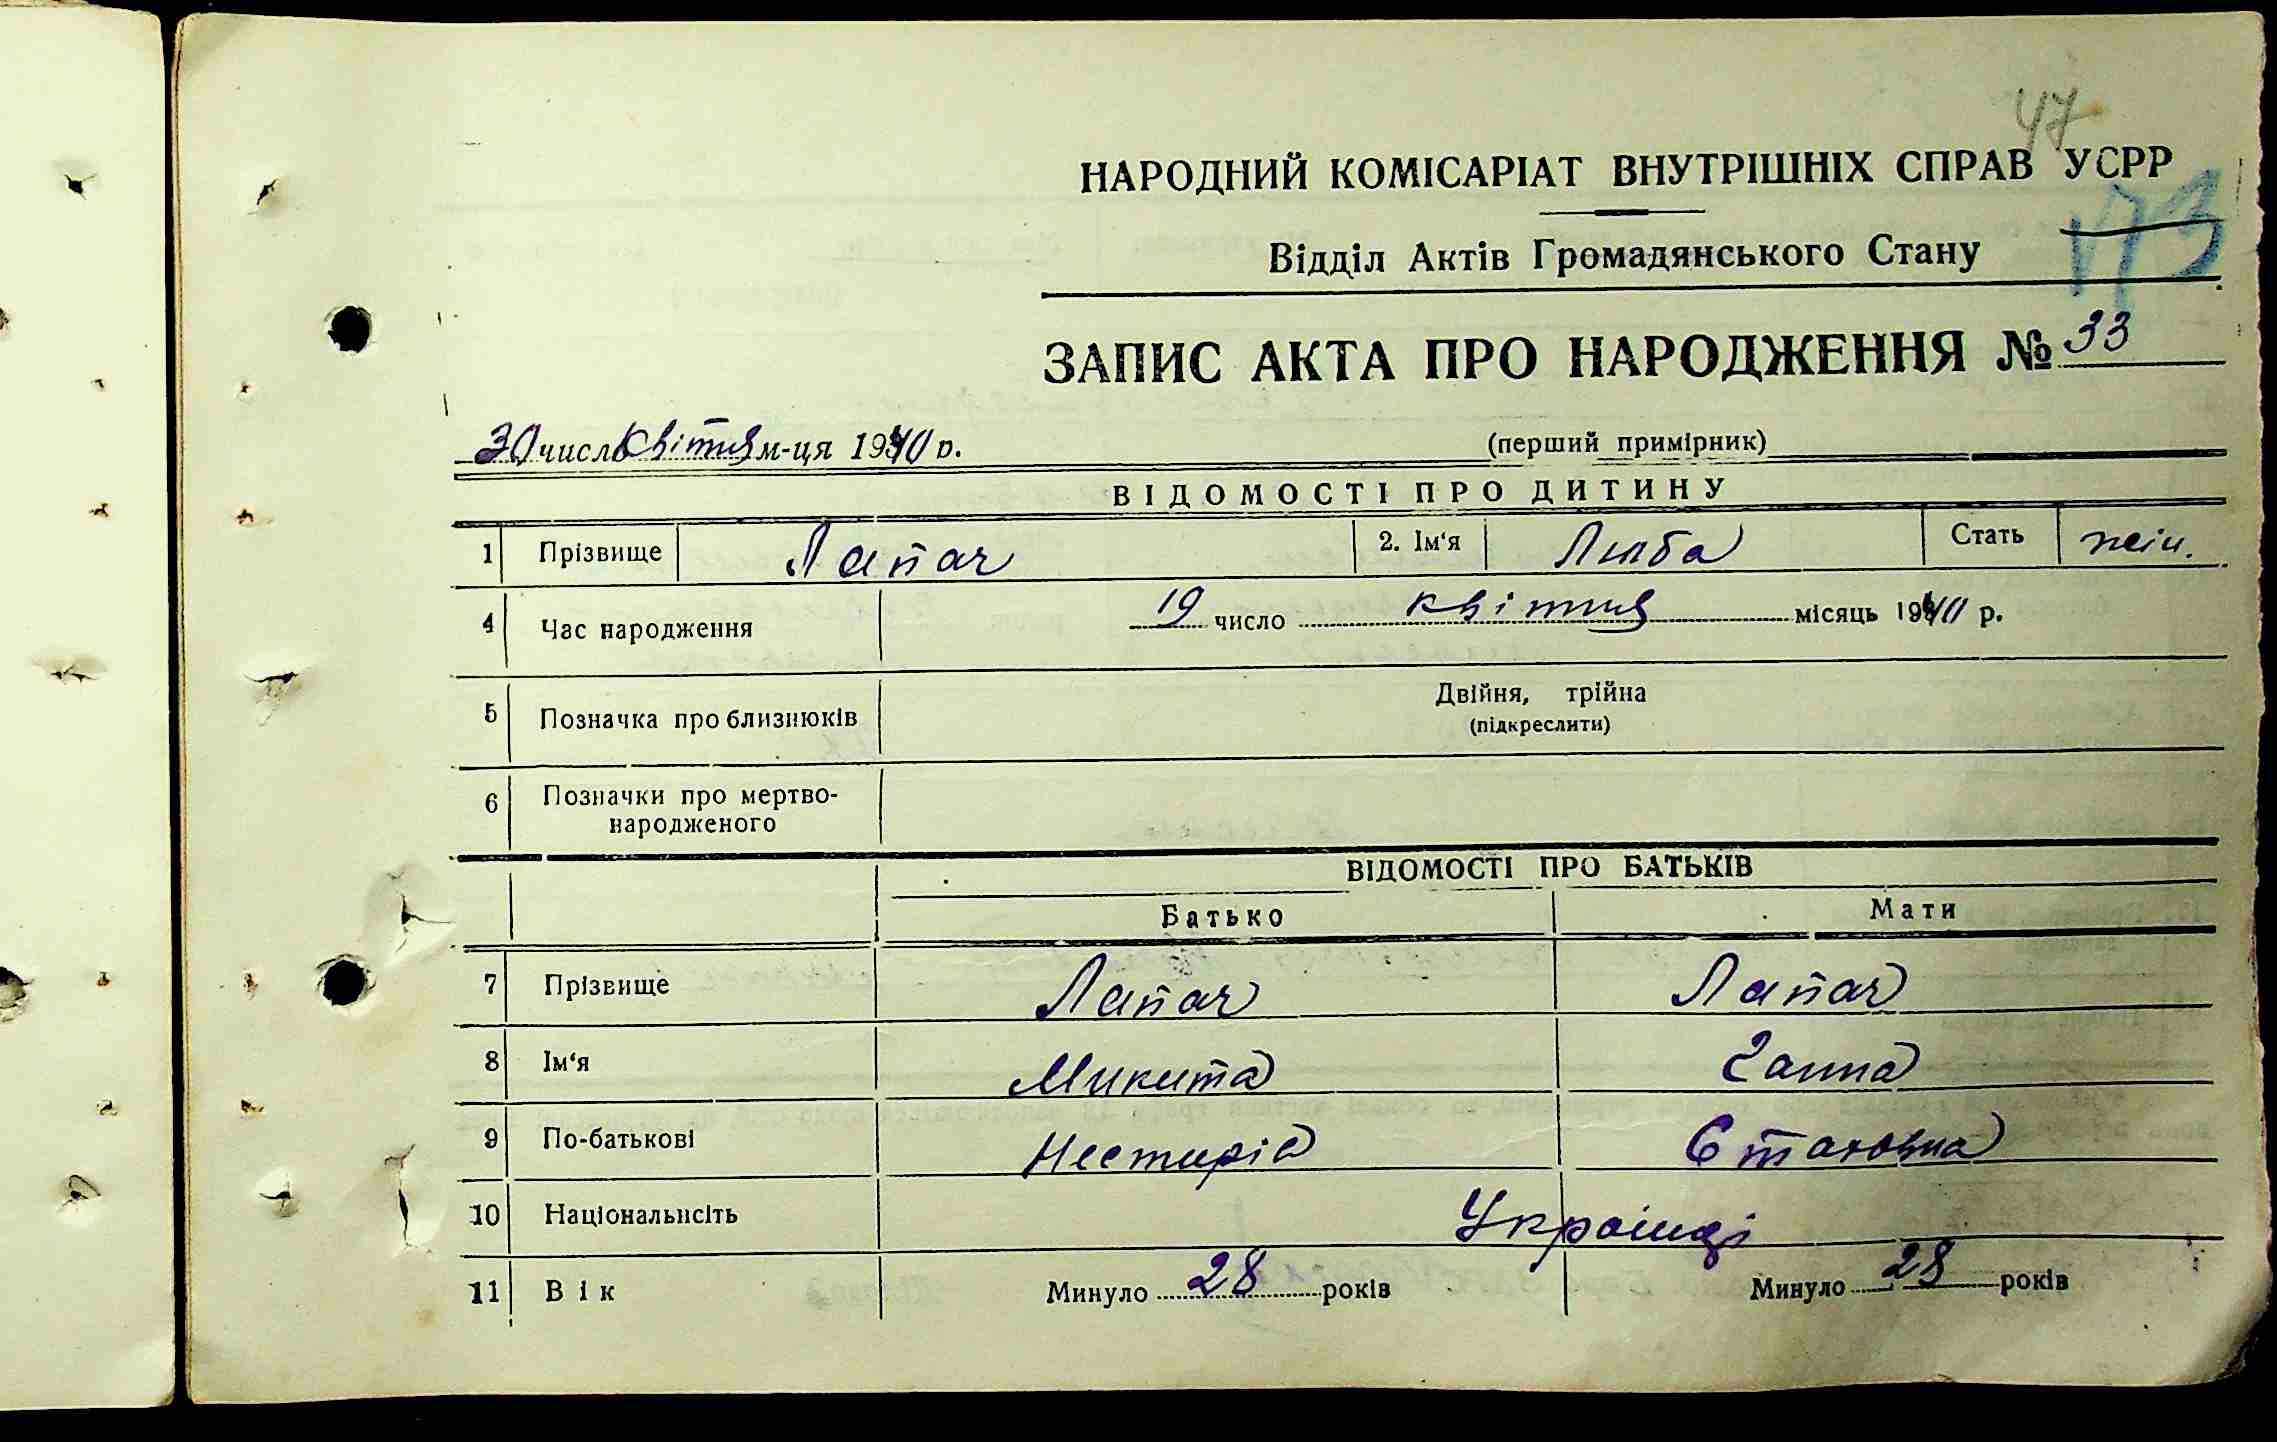 47
НАРОДНИЙ КОМІСАРІАТ ВНУТРІШНІХ СПРАВ УСРР
173
Відділ Актів Громадянського Стану
ЗАПИС АКТА ПРО НАРОДЖЕННЯ № 33
30 числ квітня м-ця 1940 р.
(перший примірник)
ВІДОМОСТІ ПРО ДИТИНУ
1 Прізвище Лапач 2. Ім'я Люба Стать жін.
4 Час народження 19 число квітня місяць 1940 р.
5 Позначка про близнюків Двійня, трійна
(підкреслити)
6 Позначки про мертво-
народженого
ВІДОМОСТІ ПРО БАТЬКІВ
Батько Мати
7 Прізвище Лапач Лапач
8 Ім'я Микита Ганна
9 По-батькові Нестирів Єтаховна
10 Національність Українці
11 Вік Минуло 28 років Минуло 28 років